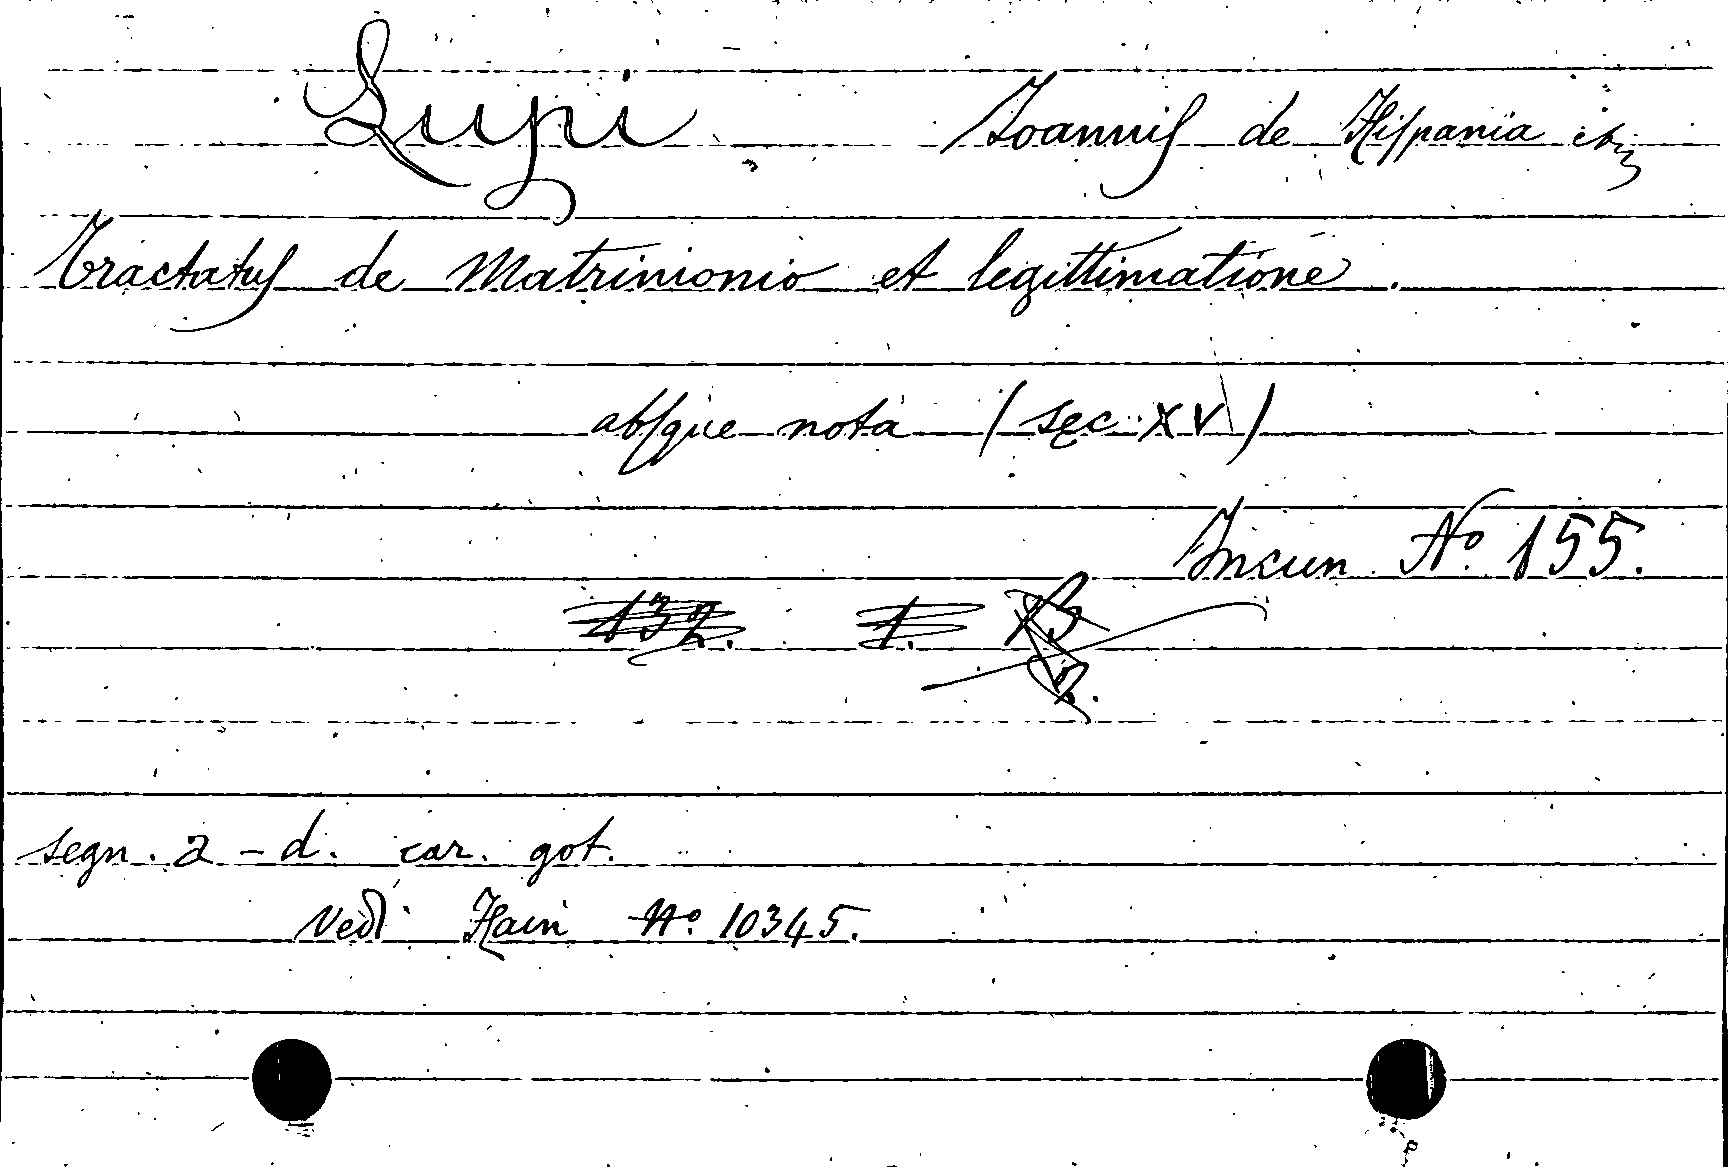 Lupi Joannis de Hispania
Tractatus de Matrimonio et legittimatione.
absque nota (sec XV)
Incun Nº 155.
132. 1. B
2.
segn. a - d. car. got.
Vedi Hain Nº 10345.